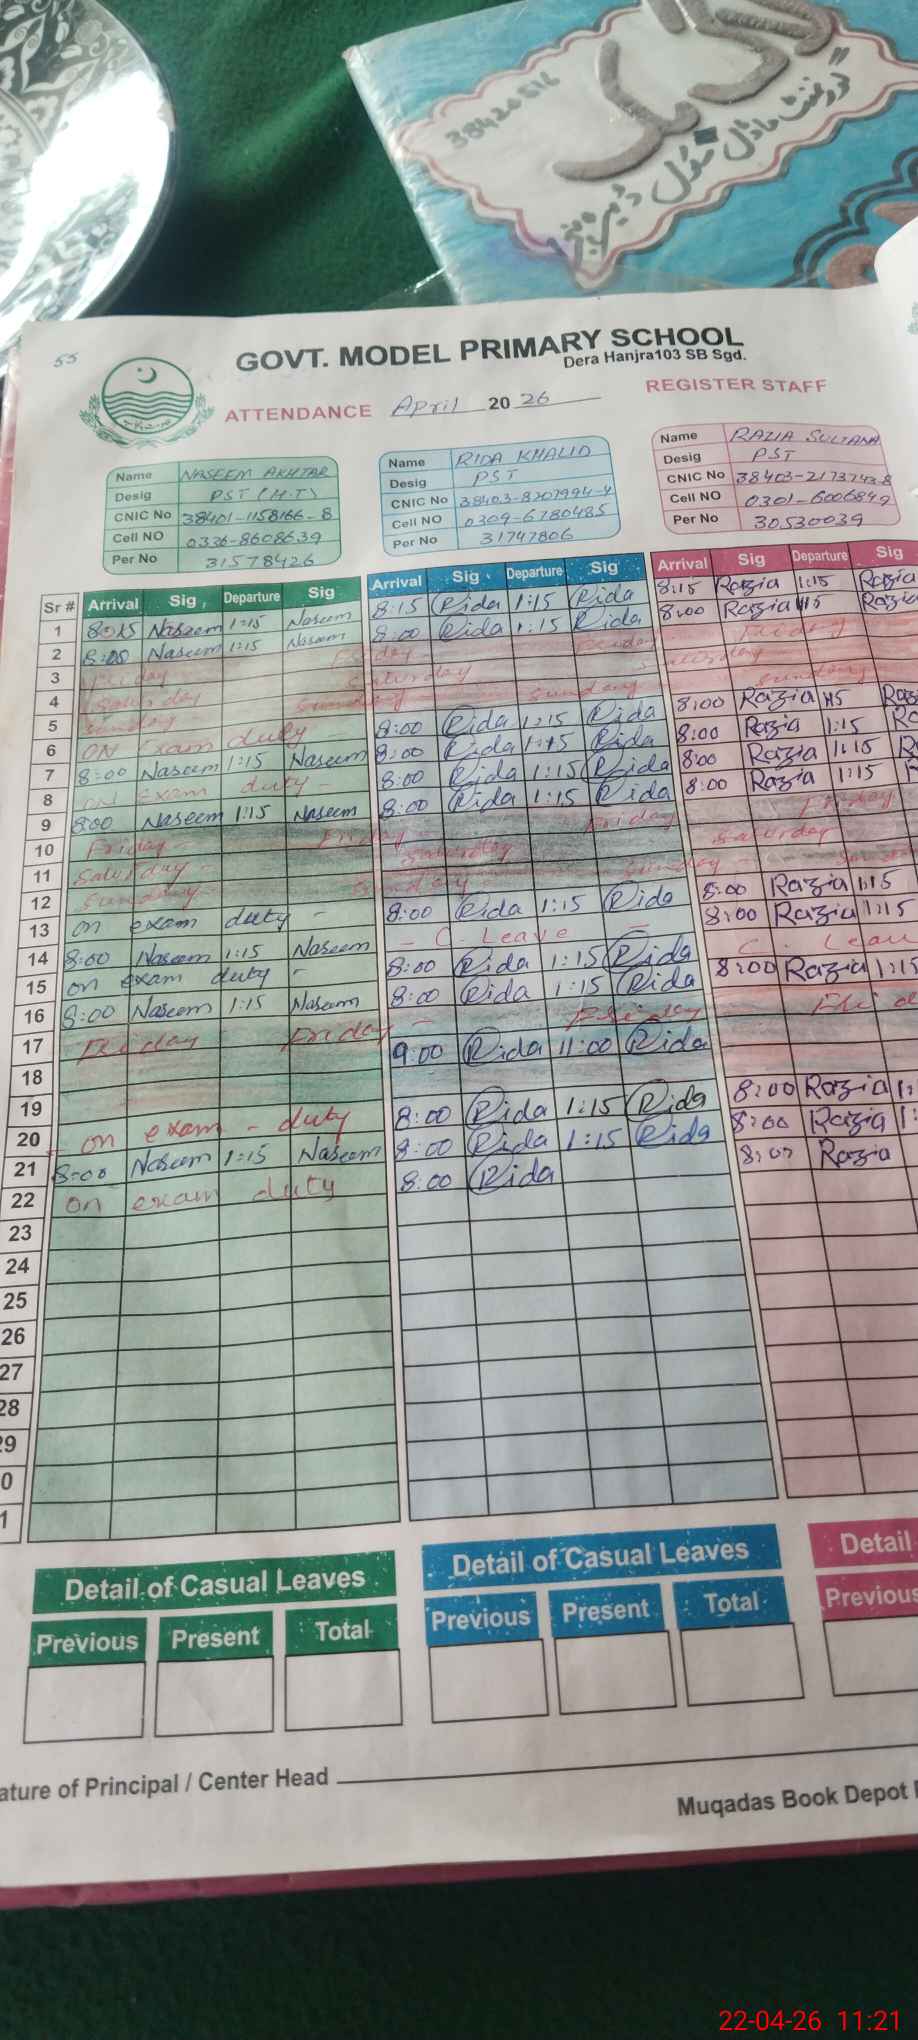 38420516
گورنمنٹ ماڈل سکول ڈیرہ ہنجرا
55
GOVT. MODEL PRIMARY SCHOOL
Dera Hanjra103 SB Sgd.
ATTENDANCE April 2026 REGISTER STAFF
Name NASEEM AKHTAR
Desig PST (H.T)
CNIC No 38401-1158166-8
Cell NO 0336-8608639
Per No 31578426
Name RIDA KHALID
Desig PST
CNIC No 38403-8207994-4
Cell NO 0309-6780485
Per No 31747806
Name RAZIA SULTANA
Desig PST
CNIC No 38403-2173743-8
Cell NO 0301-6006849
Per No 30530039
Sr # Arrival Sig Departure Sig Arrival Sig Departure Sig Arrival Sig Departure Sig
1 8:15 Naseem 1:15 Naseem 8:15 Rida 1:15 Rida 8:15 Razia 1:15 Razia
2 8:00 Naseem 1:15 Naseem 8:00 Rida 1:15 Rida 8:00 Razia 1:15 Razia
3 Friday Friday Friday Friday
4 Saturday Saturday Saturday
5 Sunday Sunday Sunday Sunday
6 ON Exam duty 8:00 Rida 1:15 Rida 8:00 Razia 1:15
7 8:00 Naseem 1:15 Naseem 8:00 Rida 1:15 Rida 8:00 Razia 1:15
8 on exam duty 8:00 Rida 1:15 Rida 8:00 Razia 1:15
9 8:00 Naseem 1:15 Naseem 8:00 Rida 1:15 Rida 8:00 Razia 1:15
10 Friday Friday Friday Friday
11 Saturday Saturday Saturday
12 Sunday Sunday Sunday
13 on exam duty - 8:00 Rida 1:15 Rida 8:00 Razia 1:15
14 8:00 Naseem 1:15 Naseem - C. Leave - 8:00 Razia 1:15
15 on exam duty - 8:00 Rida 1:15 Rida C. Leav
16 8:00 Naseem 1:15 Naseem 8:00 Rida 1:15 Rida 8:00 Razia 1:15
17 Friday Friday - Friday Frid
18 9:00 Rida 11:00 Rida
19
20 - on exam - duty 8:00 Rida 1:15 Rida 8:00 Razia
21 8:00 Naseem 1:15 Naseem 8:00 Rida 1:15 Rida 8:00 Razia
22 on exam duty 8:00 Rida 8:00 Razia
23
24
25
26
27
28
29
0
1
Detail of Casual Leaves Detail of Casual Leaves Detail
Previous Present Total Previous Present Total Previous
ature of Principal / Center Head
Muqadas Book Depot
22-04-26 11:21